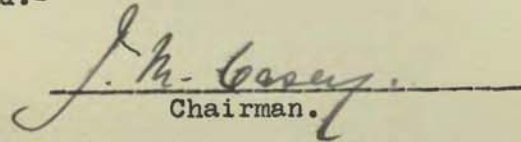 J. M. Casey.
Chairman.